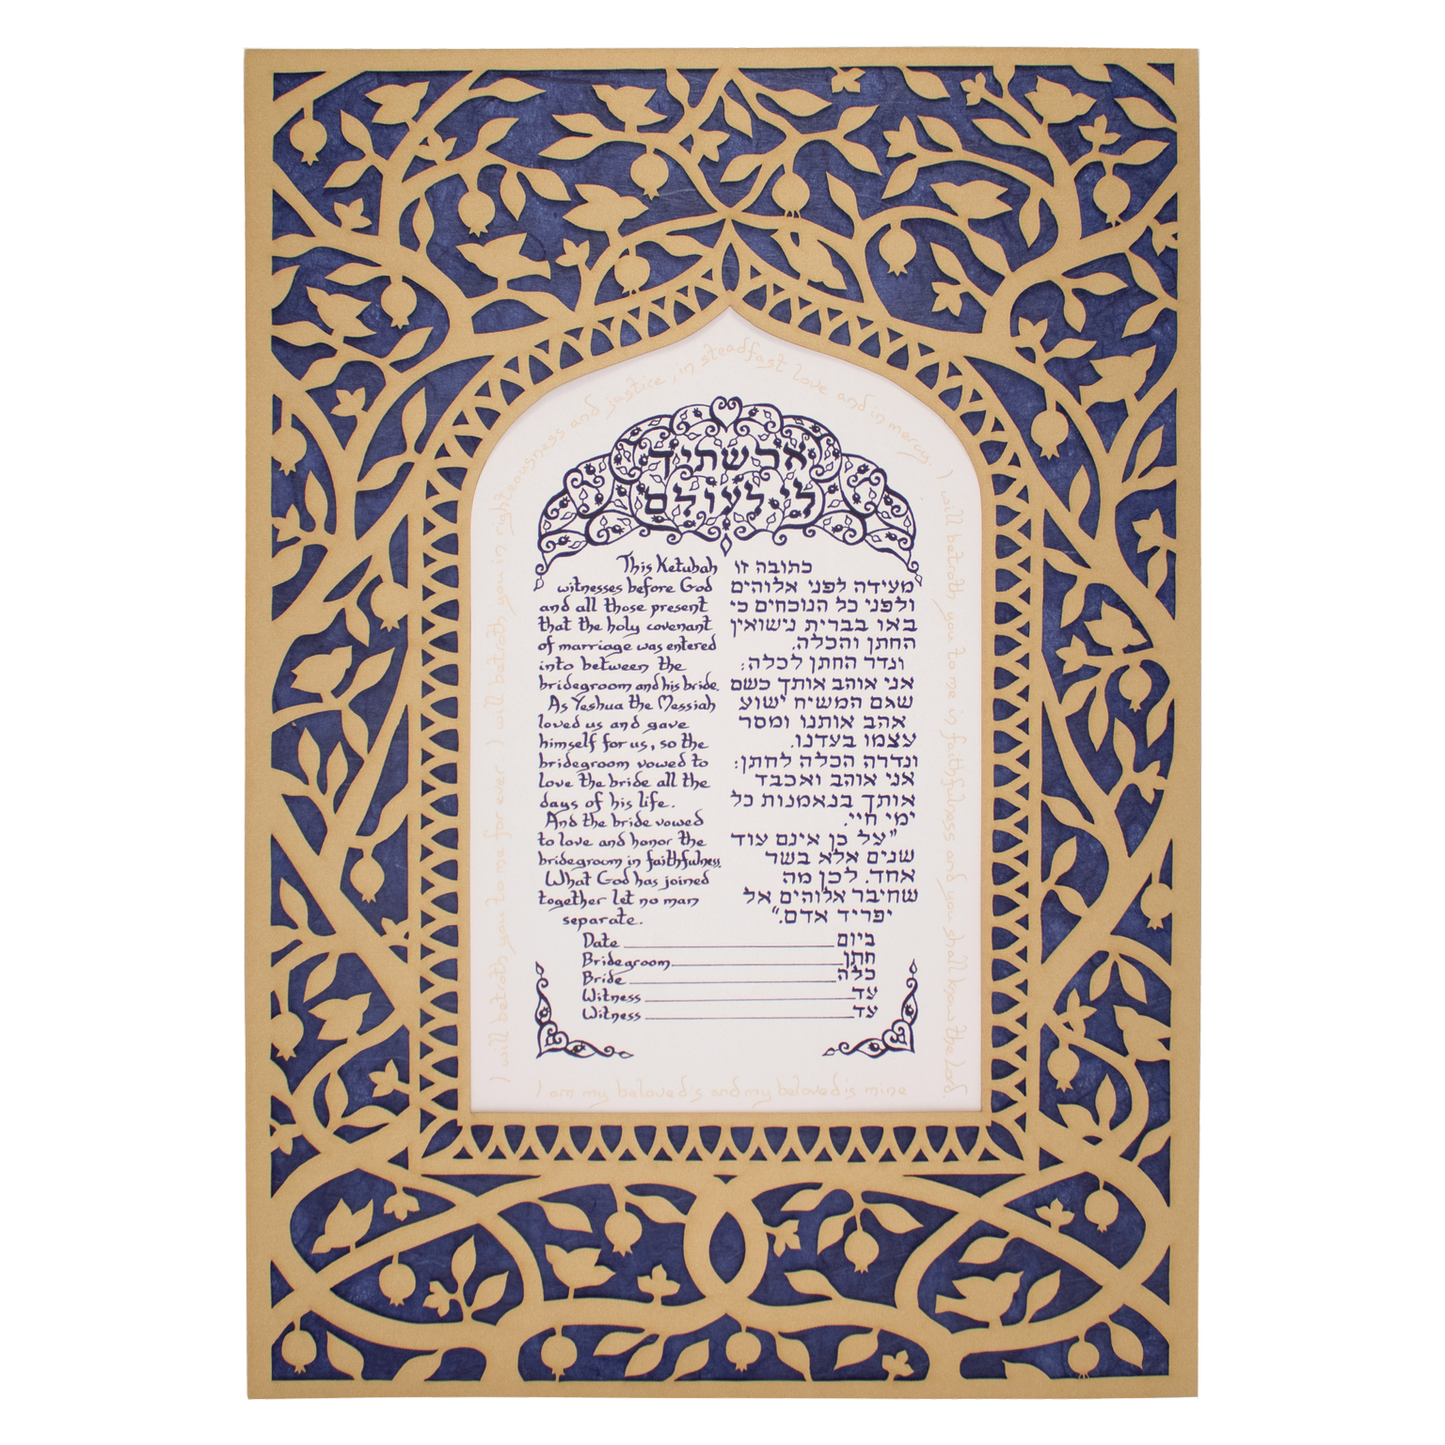 I will betroth you to me for ever. I will betroth you in righteousness and justice, in steadfast love and in mercy. I will betroth you to me in faithfulness and you shall know the Lord.
ארשתיך
לי לעולם
This Ketubah
witnesses before God
and all those present
that the holy covenant
of marriage was entered
into between the
bridegroom and his bride.
As Yeshua the Messiah
loved us and gave
himself for us, so the
bridegroom vowed to
love the bride all the
days of his life.
And the bride vowed
to love and honor the
bridegroom in faithfulness.
What God has joined
together let no man
separate.
כתובה זו
מעידה לפני אלוהים
ולפני כל הנוכחים כי
באו בברית נישואין
החתן והכלה.
ונדר החתן לכלה:
אני אוהב אותך כשם
שגם המשיח ישוע
אהב אותנו ומסר
עצמו בעדנו.
ונדרה הכלה לחתן:
אני אוהב ואכבד
אותך בנאמנות כל
ימי חיי.
"על כן אינם עוד
שנים אלא בשר
אחד. לכן מה
שחיבר אלוהים אל
יפריד אדם."
Date ביום
Bridegroom חתן
Bride כלה
Witness עד
Witness עד
I am my beloved's and my beloved is mine